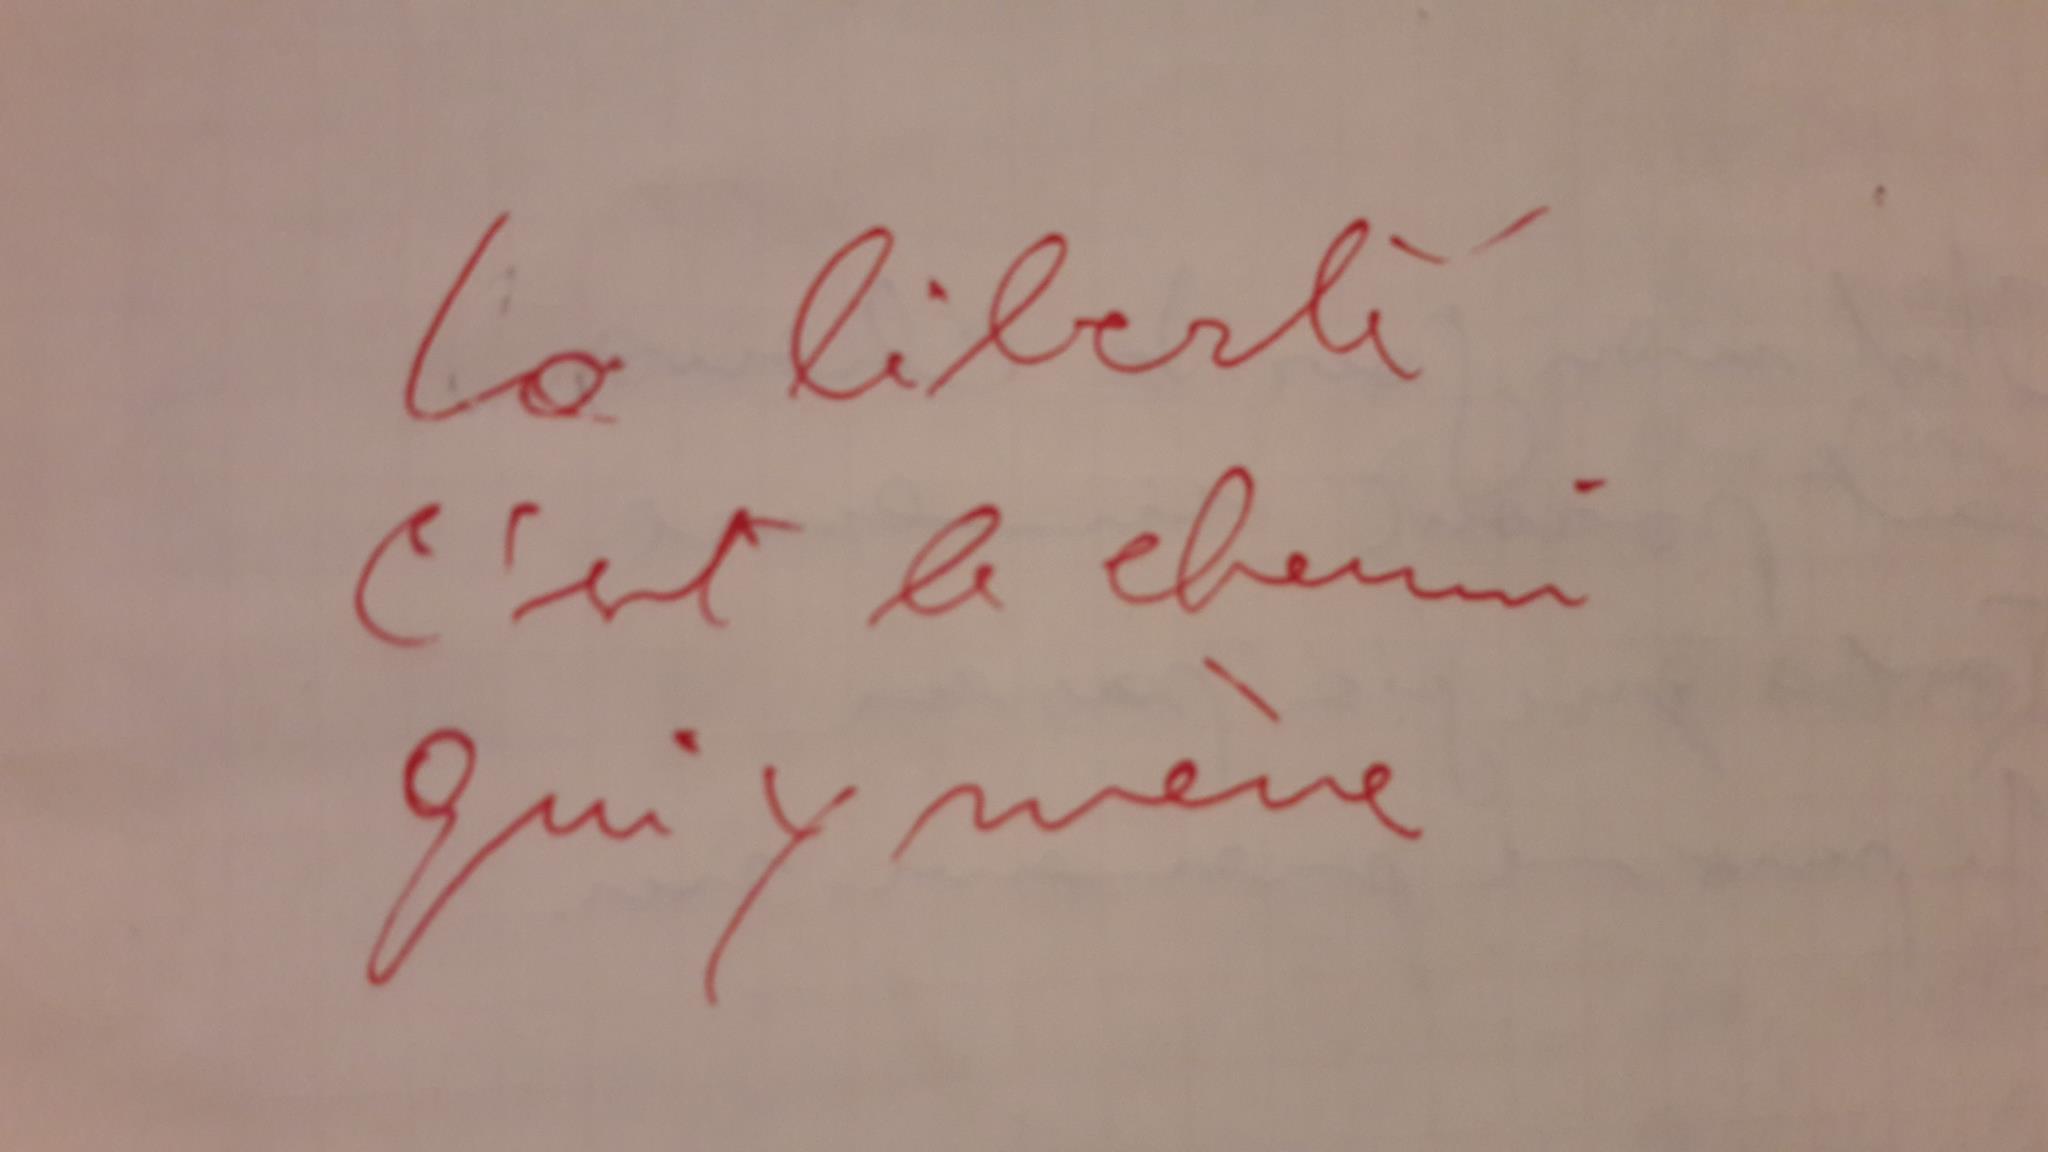 La liberté
c'est le chemin
qui y mène